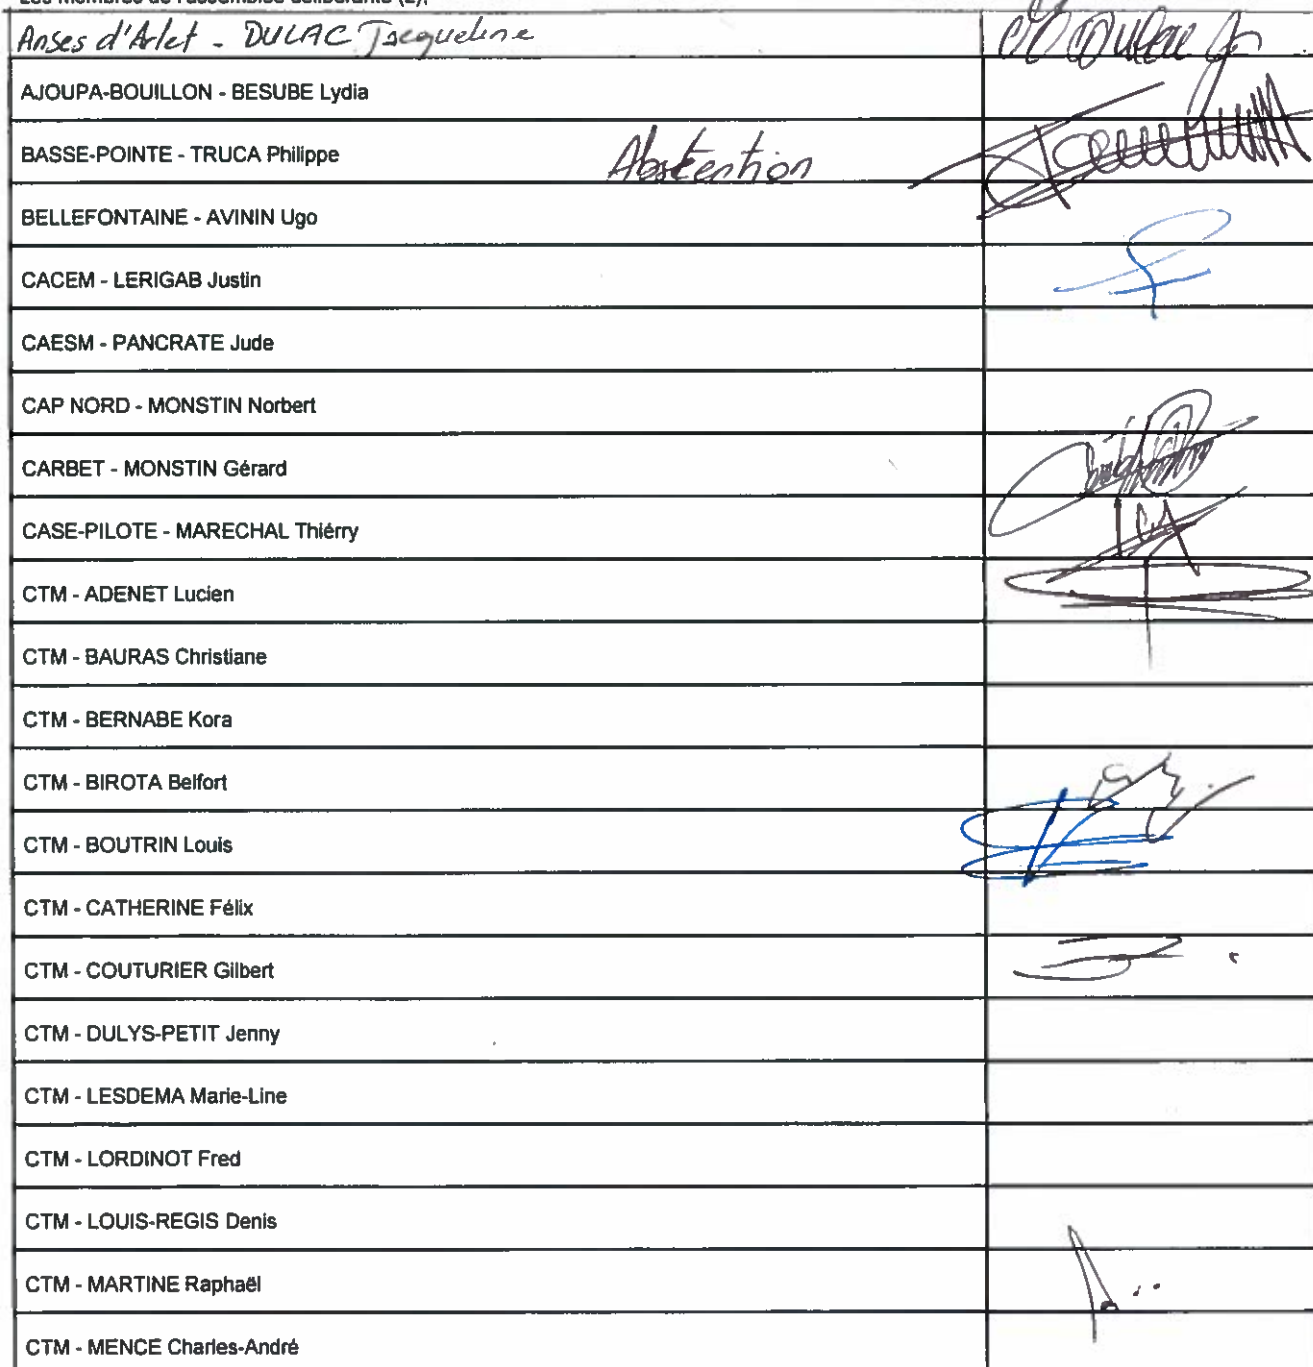 Les membres de l'assemblée délibérante (2),
Anses d'Arlet - DULAC Jacqueline
AJOUPA-BOUILLON - BESUBE Lydia
BASSE-POINTE - TRUCA Philippe Abstention
BELLEFONTAINE - AVININ Ugo
CACEM - LERIGAB Justin
CAESM - PANCRATE Jude
CAP NORD - MONSTIN Norbert
CARBET - MONSTIN Gérard
CASE-PILOTE - MARECHAL Thiérry
CTM - ADENET Lucien
CTM - BAURAS Christiane
CTM - BERNABE Kora
CTM - BIROTA Belfort
CTM - BOUTRIN Louis
CTM - CATHERINE Félix
CTM - COUTURIER Gilbert
CTM - DULYS-PETIT Jenny
CTM - LESDEMA Marie-Line
CTM - LORDINOT Fred
CTM - LOUIS-REGIS Denis
CTM - MARTINE Raphaël
CTM - MENCE Charles-André